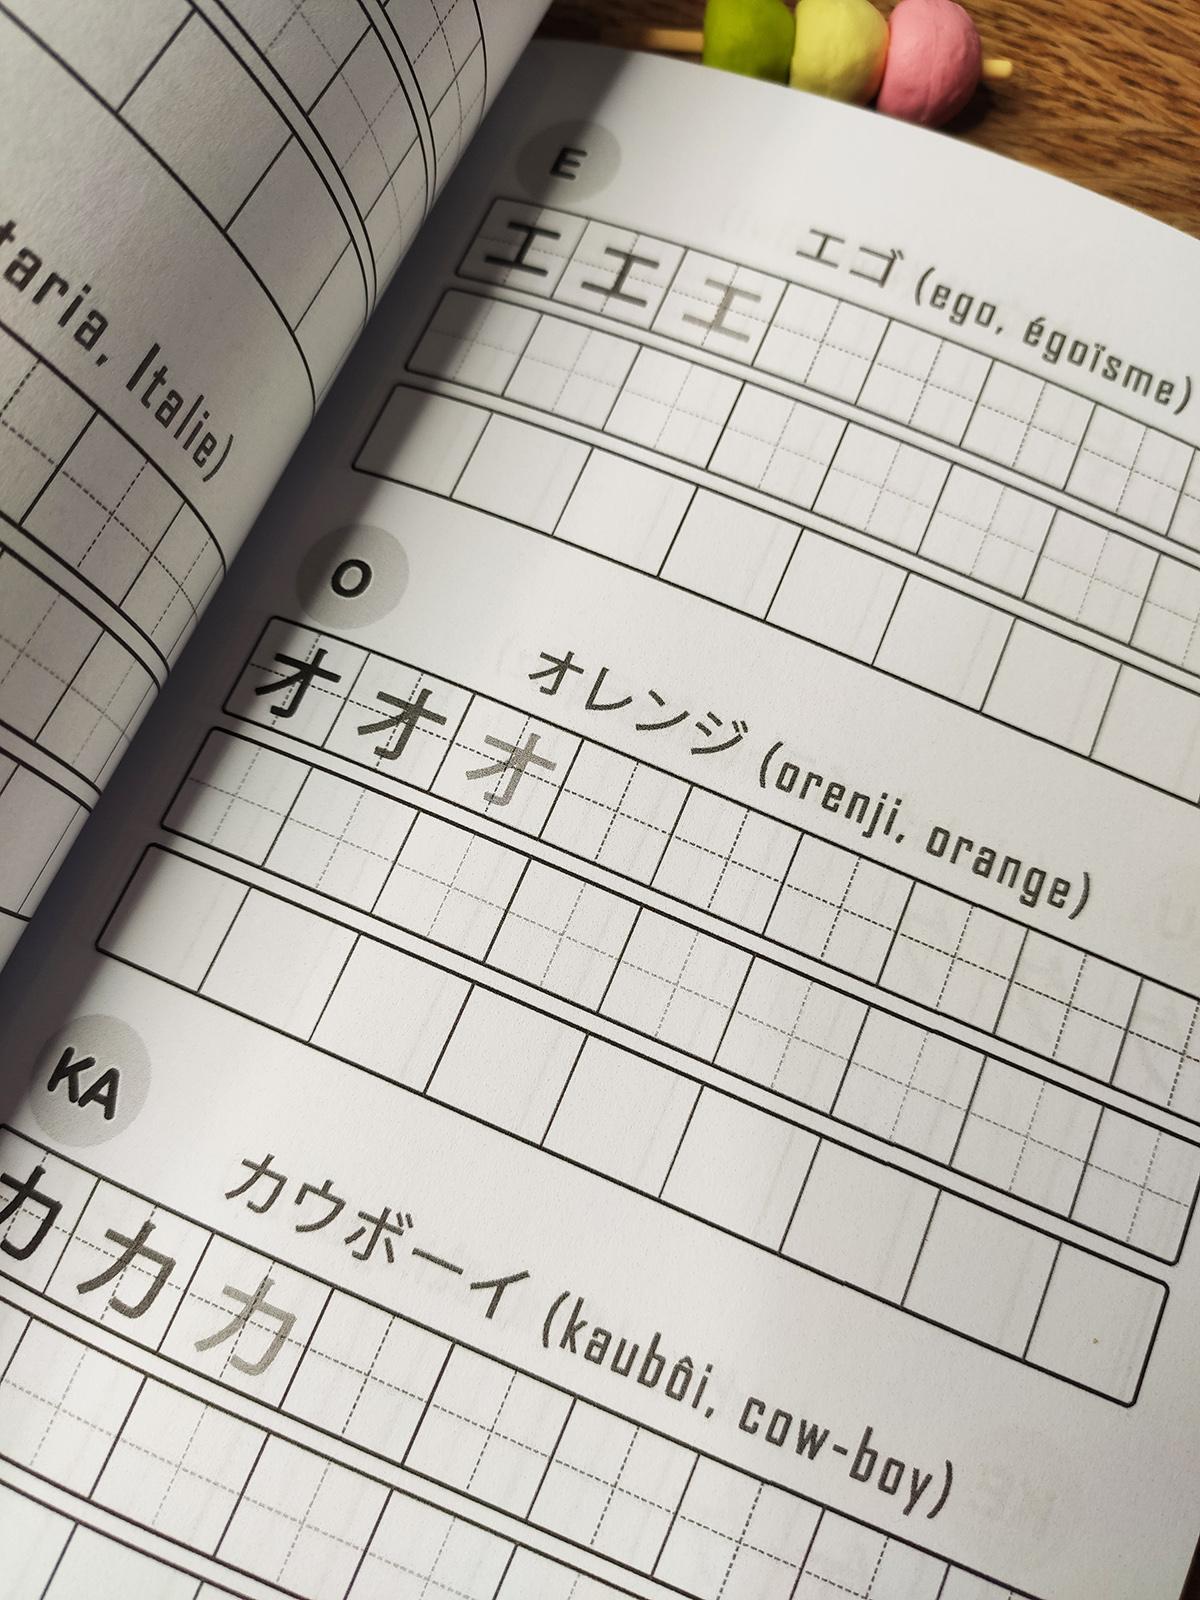 taria, Italie)
E
エゴ (ego, égoïsme)
エ エ エ
O
オレンジ (orenji, orange)
オ オ オ
KA
カウボーイ (kaubôi, cow-boy)
カ カ カ